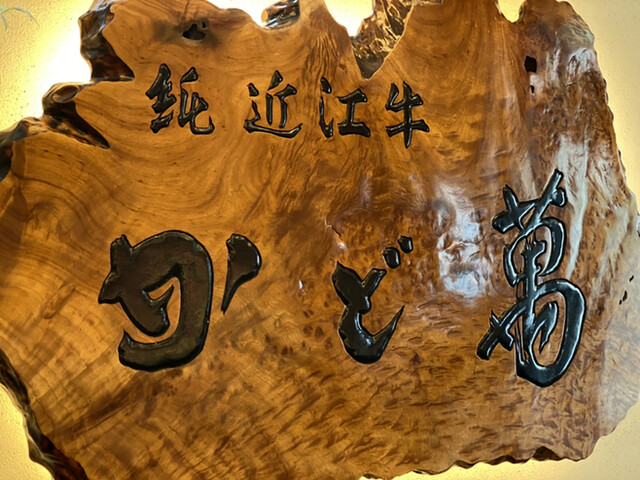 純近江牛
かど萬